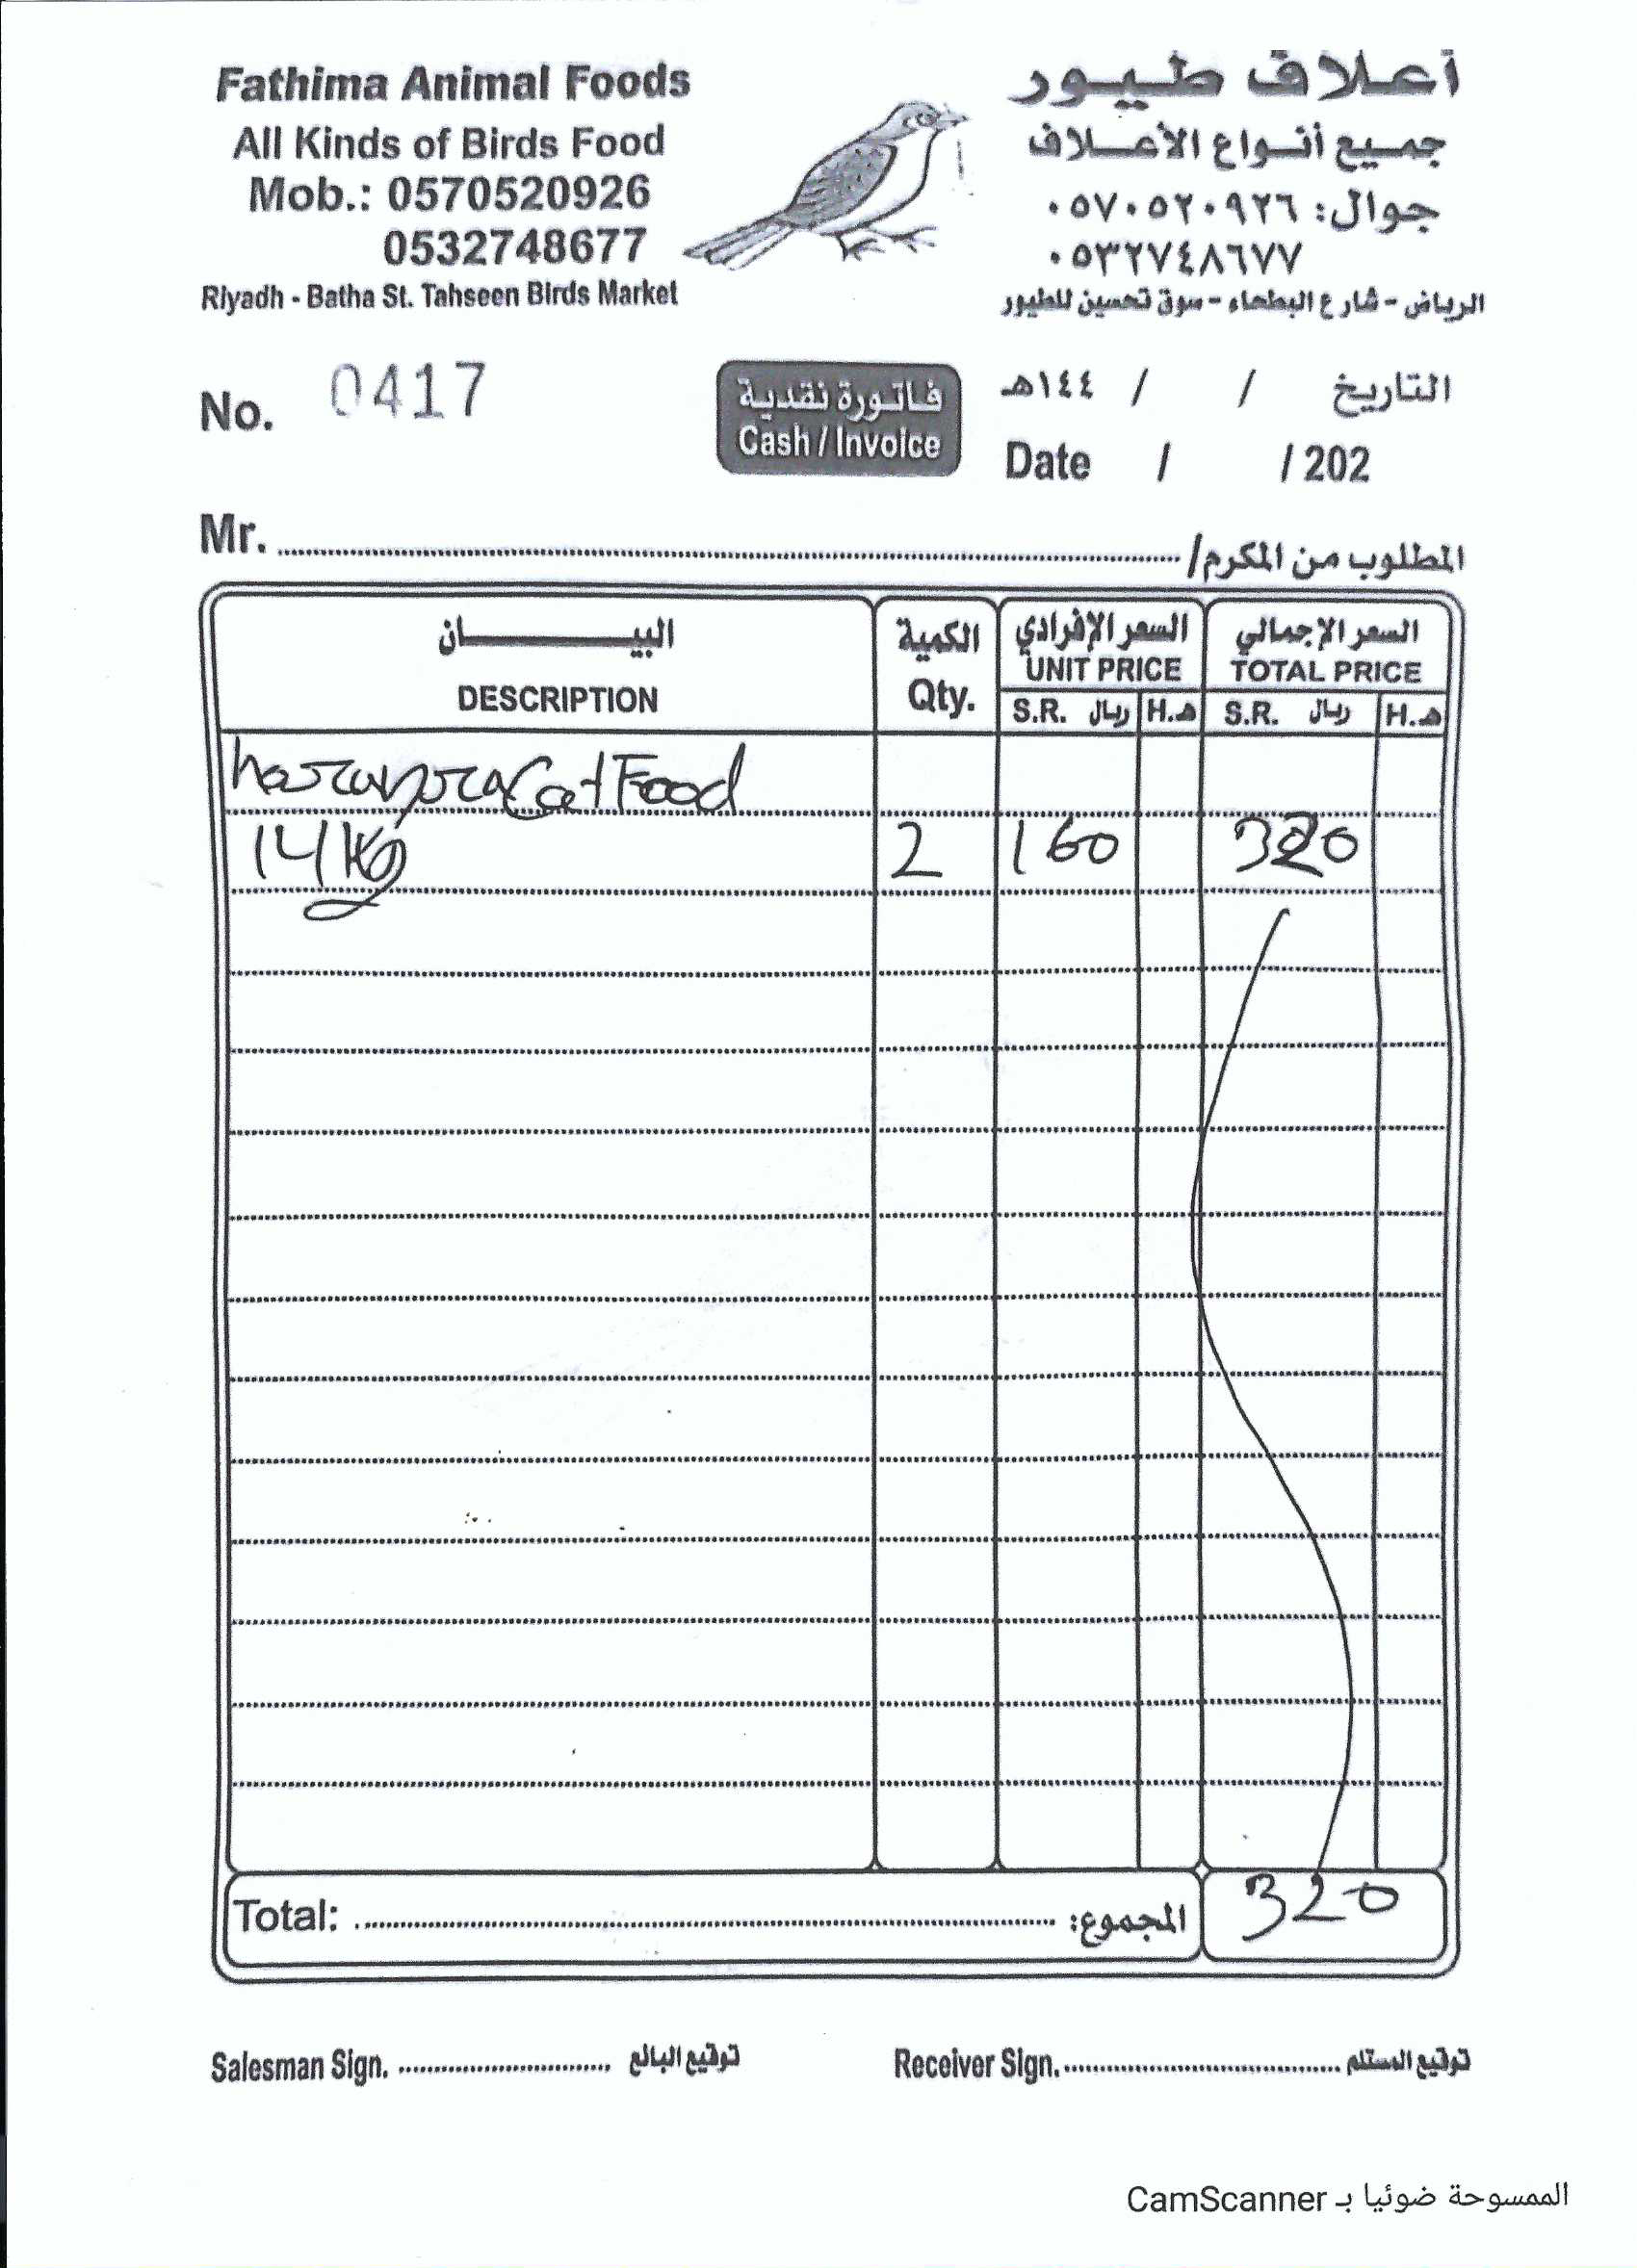 Fathima Animal Foods
All Kinds of Birds Food
Mob.: 0570520926
0532748677
Riyadh - Batha St. Tahseen Birds Market
أعلاف طيور
جميع أنواع الأعلاف
جوال: ٠٥٧٠٥٢٠٩٢٦
٠٥٣٢٧٤٨٦٧٧
الرياض - شارع البطحاء - سوق تحسين للطيور
No. 0417
فاتورة نقدية
Cash / Invoice
التاريخ / / ١٤٤هـ
Date / / 202
Mr. المطلوب من المكرم/
البيـــان الكمية السعر الإفرادي السعر الإجمالي
DESCRIPTION Qty. UNIT PRICE TOTAL PRICE
S.R. ريال H.هـ S.R. ريال H.هـ
Cat Food
14 Kg 2 160 320
Total: المجموع: 320
Salesman Sign. توقيع البائع
Receiver Sign. توقيع المستلم
الممسوحة ضوئيا بـ CamScanner